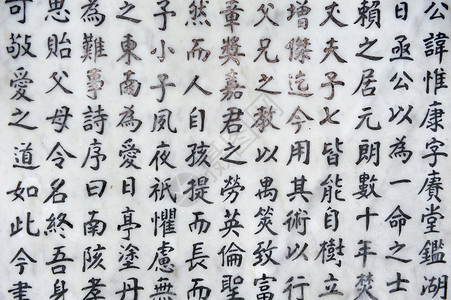 公諱惟康字賡堂鑑湖
日亟公以為一命之士
賴之居元朗數十年焚
丈夫子七皆能自樹立
增傑迄今用其術以行
父兄之教以禺筴致富
章獎嘉君之勞英倫聖
然而人自孩提而長而
子小子夙夜祇懼慮無
之東南為愛日亭塗丹
為難事詩序曰南陔孝
思貽父母令名終吾身
可敬愛之道如此今